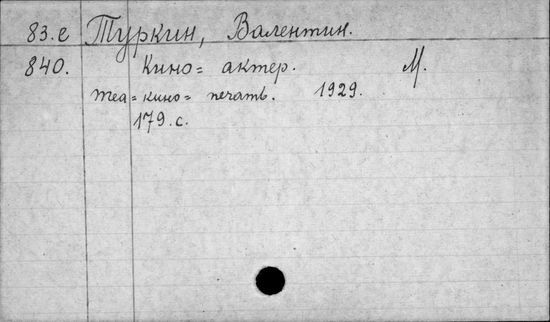 83.e Туркин, Валентин.
840. Кино= актер. М.
теа=кино= печать. 1929.
179.с.